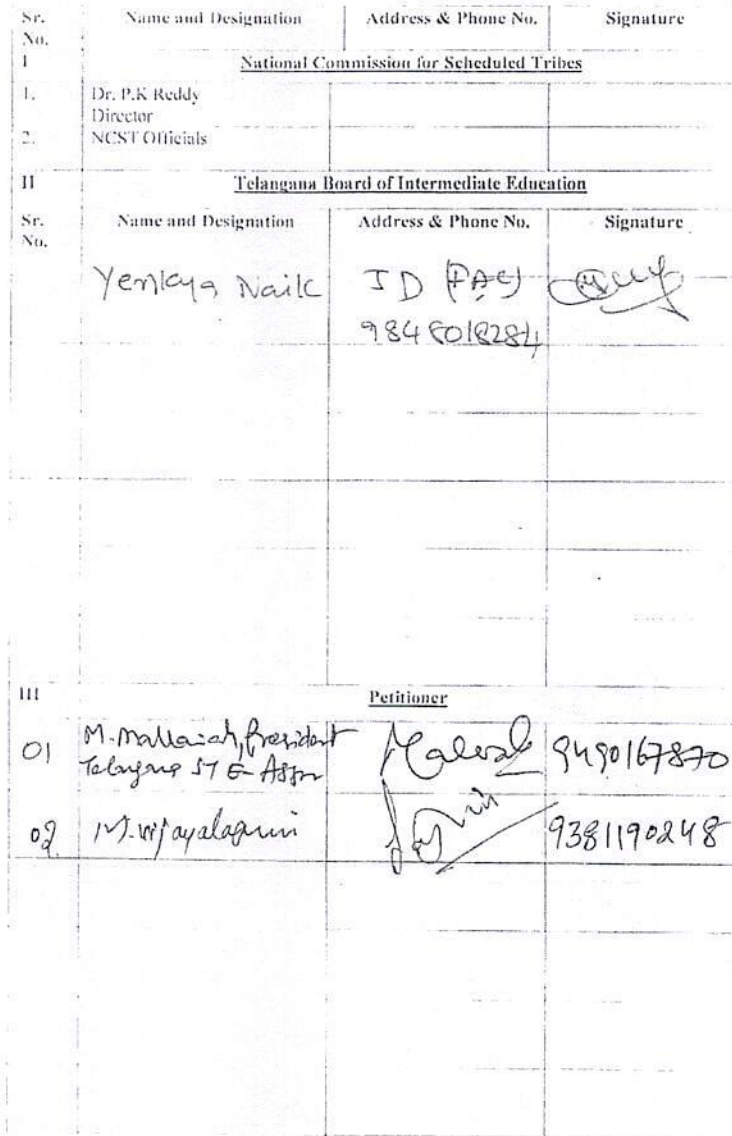 Sr. No. Name and Designation Address & Phone No. Signature
I National Commission for Scheduled Tribes
1. Dr. P.K Reddy
Director
2. NCST Officials
II Telangana Board of Intermediate Education
Sr. No. Name and Designation Address & Phone No. Signature
Naik J D
III Petitioner
01 M. Mallaiah, President 9490167870
ST E Assn
02 9381190248